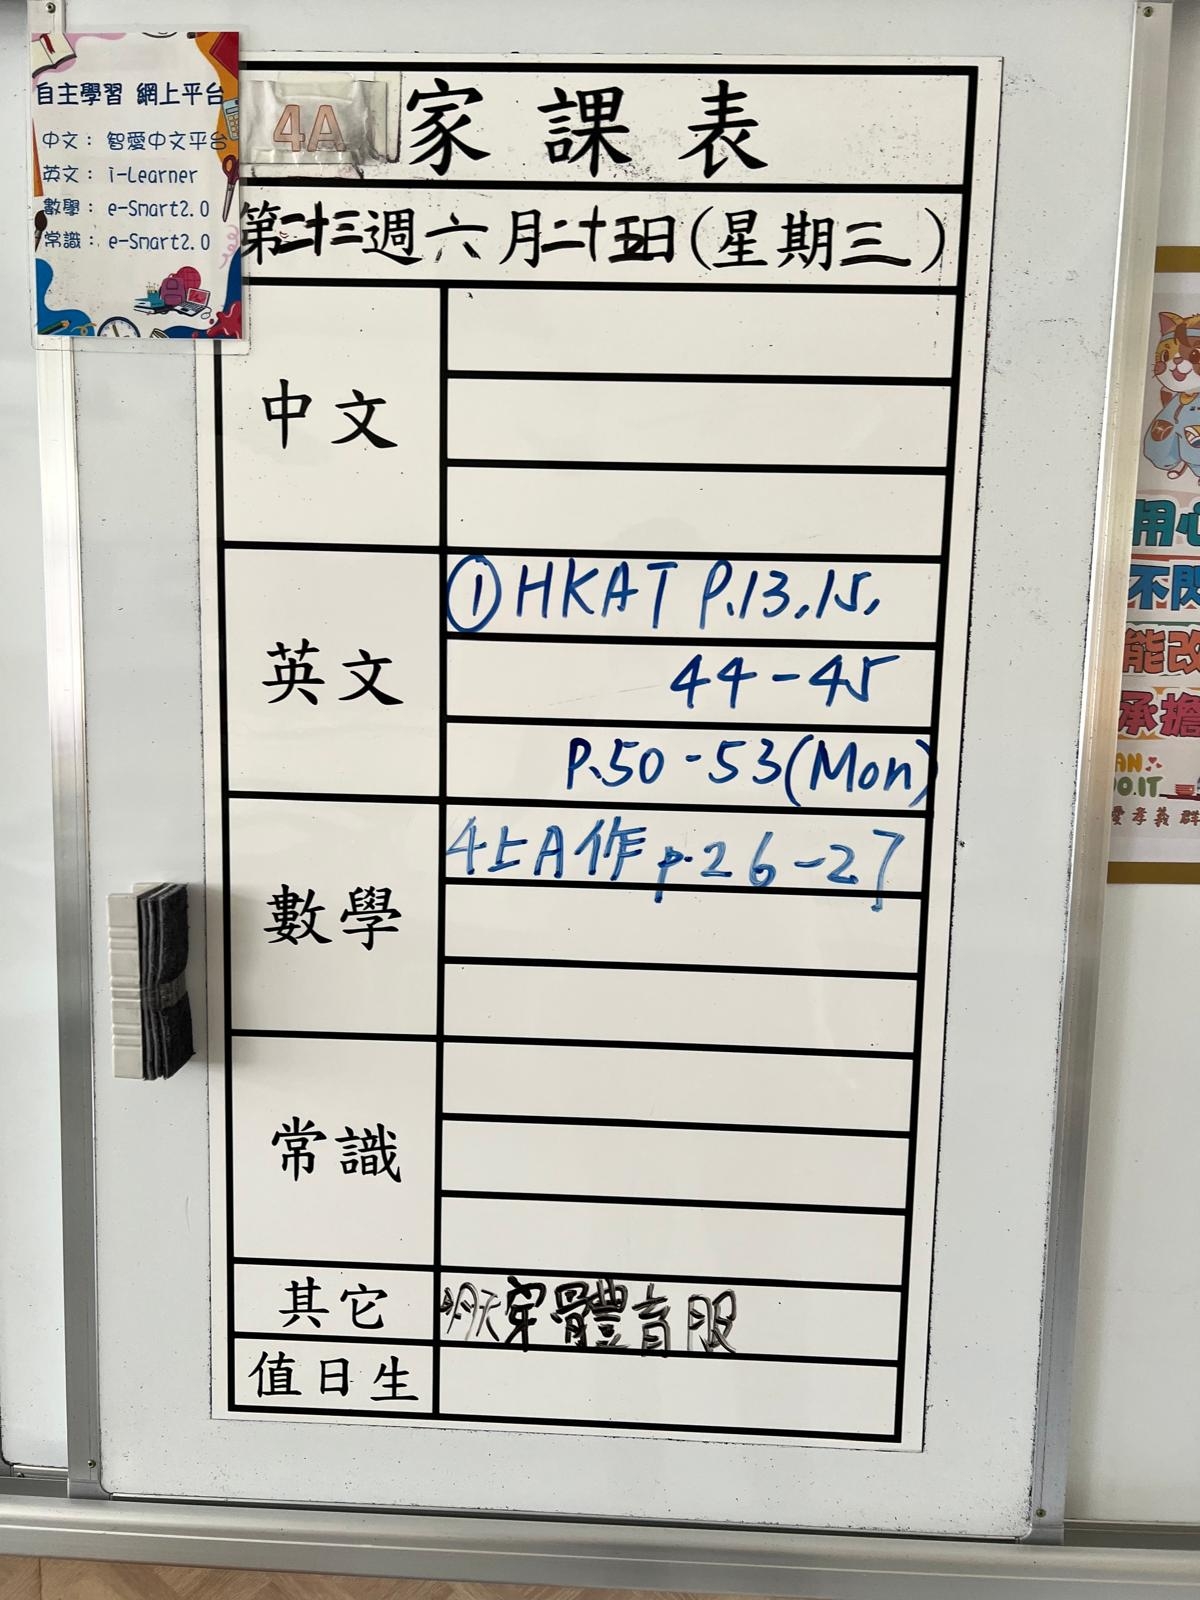 自主學習 網上平台
中文： 智愛中文平台
英文： i-Learner
數學： e-Smart2.0
常識： e-Smart2.0
4A 家課表
第二十三週六月二十五日(星期三)
中文
英文
①HKAT P.13,15,
44-45
P.50-53(Mon)
數學
4上A作 p.26-27
常識
其它
明天穿體育服
值日生
用心
不
能改
承擔
DO.IT
愛孝義群